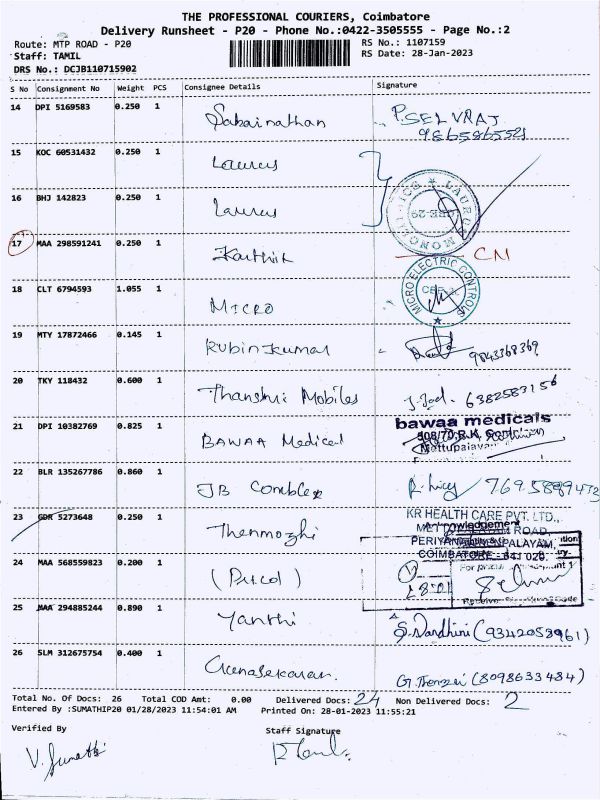 THE PROFESSIONAL COURIERS, Coimbatore
Delivery Runsheet - P20 - Phone No.:0422-3505555 - Page No.:2
Route: MTP ROAD - P20
RS No.: 1107159
Staff: TAMIL
RS Date: 28-Jan-2023
DRS No.: DCJB110715902
S No Consignment No Weight PCS Consignee Details Signature
14 DPI 5169583 0.250 1 Sabainathan P. SELVRAJ
9865865521
15 KOC 60531432 0.250 1 Laurus
16 BHJ 142823 0.250 1 Laurus
17 MAA 298591241 0.250 1 Karthik CM
18 CLT 6794593 1.055 1 MICRO MICRO ELECTRIC CONTROLS
19 MTY 17872466 0.145 1 Rubin Kumar 9843368369
20 TKY 118432 0.600 1 Thanshri Mobiles 6382583156
21 DPI 10382769 0.825 1 BAWAA Medical bawaa medicals
22 BLR 135267786 0.860 1 JB Complex 7695899472
23 GDR 5273648 0.250 1 Thenmozhi KR HEALTH CARE PVT. LTD.,
Acknowledgement
COIMBATORE - 641 020.
24 MAA 568559823 0.200 1
25 MAA 294885244 0.890 1 Yanthi S. Nandhini (9342058961)
26 SLM 312675754 0.400 1 Gunasekaran. (8098633484)
Total No. Of Docs: 26 Total COD Amt: 0.00 Delivered Docs: 24 Non Delivered Docs: 2
Entered By :SUMATHIP20 01/28/2023 11:54:01 AM Printed On: 28-01-2023 11:55:21
Verified By Staff Signature
V. Sumathi